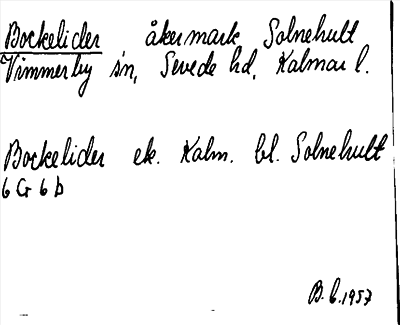 Bockelider åkermark Solnehult
Vimmerby sn, Sevede hd, Kalmar l.
Bockelider ek. Kalm. bl. Solnehult
6 G 6 b
B. C. 1957